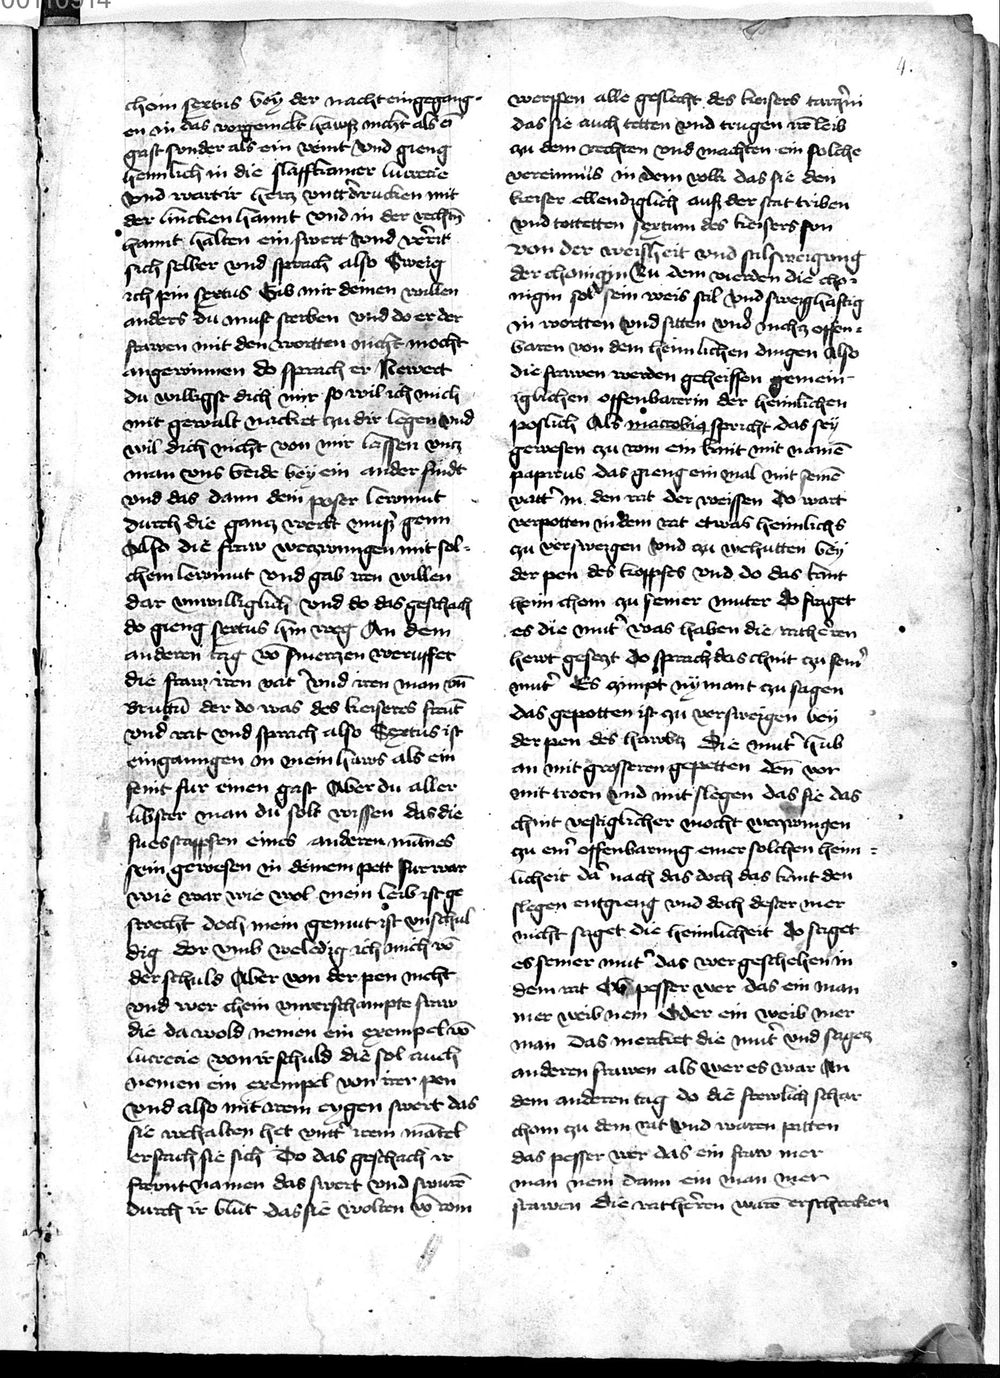 00110914
4.
chom sextus bey der nacht eingegang-
en in das vorgemelt hawß nicht als ei
gast sonder als ein veint vnd gieng
heimlich in die slaffkamer lucrecie
vnd wart ir hercz vntterdrucken mit
der lincken hannt vnd in der rechtn
hannt halten ein swert vnd
sich selber vnd sprach also Sweig
ich pin sextus Gib mir deinen willen
anders du must sterben vnd do er der
frawen mit den wortten nicht mocht
angewinnen do sprach er Newert
du willigst dich mir so wil ich mich
mit gewalt nacket zu dir legen vnd
wil dich nicht von mir lassen vncz
man vns beide bey ein ander findt
vnd das dann dein poser lewmut
durch die gancz werlt muß genn
Also die fraw weczwungen mit sol-
chem lewmut vnd gab iren willen
dar vnwilliglich vnd do das geschach
do gieng sextus hin weg An dem
anderen tag vo smerczen weruffet
die fraw iren vat' vnd iren man vn
bruder der do was des keiseres frut
vnd rat vnd sprach also Sextus ist
eingangen in mein haws als ein
feint fur einen gast Aber du aller
libster man du solt wissen das die
fuesstapffen eines anderen manes
sein gewesen in deinem pett furwar
wie war wie wol mein leib ist ge
swecht doch mein gemut ist vnschul
dig dor vmb weledig ich mich vo
der schuld Aber von der pen nicht
vnd wer chein vnverschampte fraw
die da wold nemen ein exempel vo
lucrecie von ir schuld die sol auch
nemen ein exempel von irer pen
vnd also mit irem eygen swert das
sie wehalten het vntt' irem matel
erstach sie sich Do das geschach ir
frewnt namen das swert vnd swure
durch ir blut das sie wolten vo rom
werffen alle geslecht des keisers tarqni
das sie auch tetten vnd trugen ire leib
zu dem rechten vnd machten ein solche
vereinnus in dem volk das sie den
keiser ellendiglich auß der stat triben
vnd tottetten sextum des keisers sun
von der weisheit vnd stilsweigung
der chonigin Zu dem vierden die cho-
nigin sol sein weis stil vnd sweighaftig
in wortten vnd sitten vnd nichcz offen-
baren von dem heimlichen dingen Also
die frawen werden geheissen gemein-
iglichen offenbarerin der heimlichen
poslich Als macrobius spricht das sey
gewesen zu rom ein kint mit name
papirus das gieng ein mal mit seine
vatt' in den rat der weissen Do wart
verpotten in dem rat etwas heimlichs
zu versweigen vnd zu wehutten bey
der pen des koppfes vnd do das kint
heim chom zu seiner muter do fraget
es die mut' was haben die ratheren
hewt geseczt Do sprach das chint zu sein'
mut' Es czimpt nymant zu sagen
das gepotten ist zu versweigen bey
der pen des hawbcz Die mut' hub
an mit grosseren gepetten den vor
mit troen vnd mit slegen das sie das
chint vestiglicher mocht weczwingen
zu ein' offenbarung einer solchen heim-
licheit dar nach das doch das kint den
slegen entgieng vnd doch dester mer
nicht saget die heimlicheit do saget
es seiner mut' das wer geschehen in
dem rat Ob pesser wer das ein man
mer weib nem Oder ein weib mer
man Das mercket die mut' vnd sagecz
anderen frawen als wer es war An
dem anderen tag do die frewlich schar
chom zu dem rat vnd waren pitten
das pesser wer das ein fraw mer
man nem dann ein man mer
frawen Die ratheren ware erschrecken